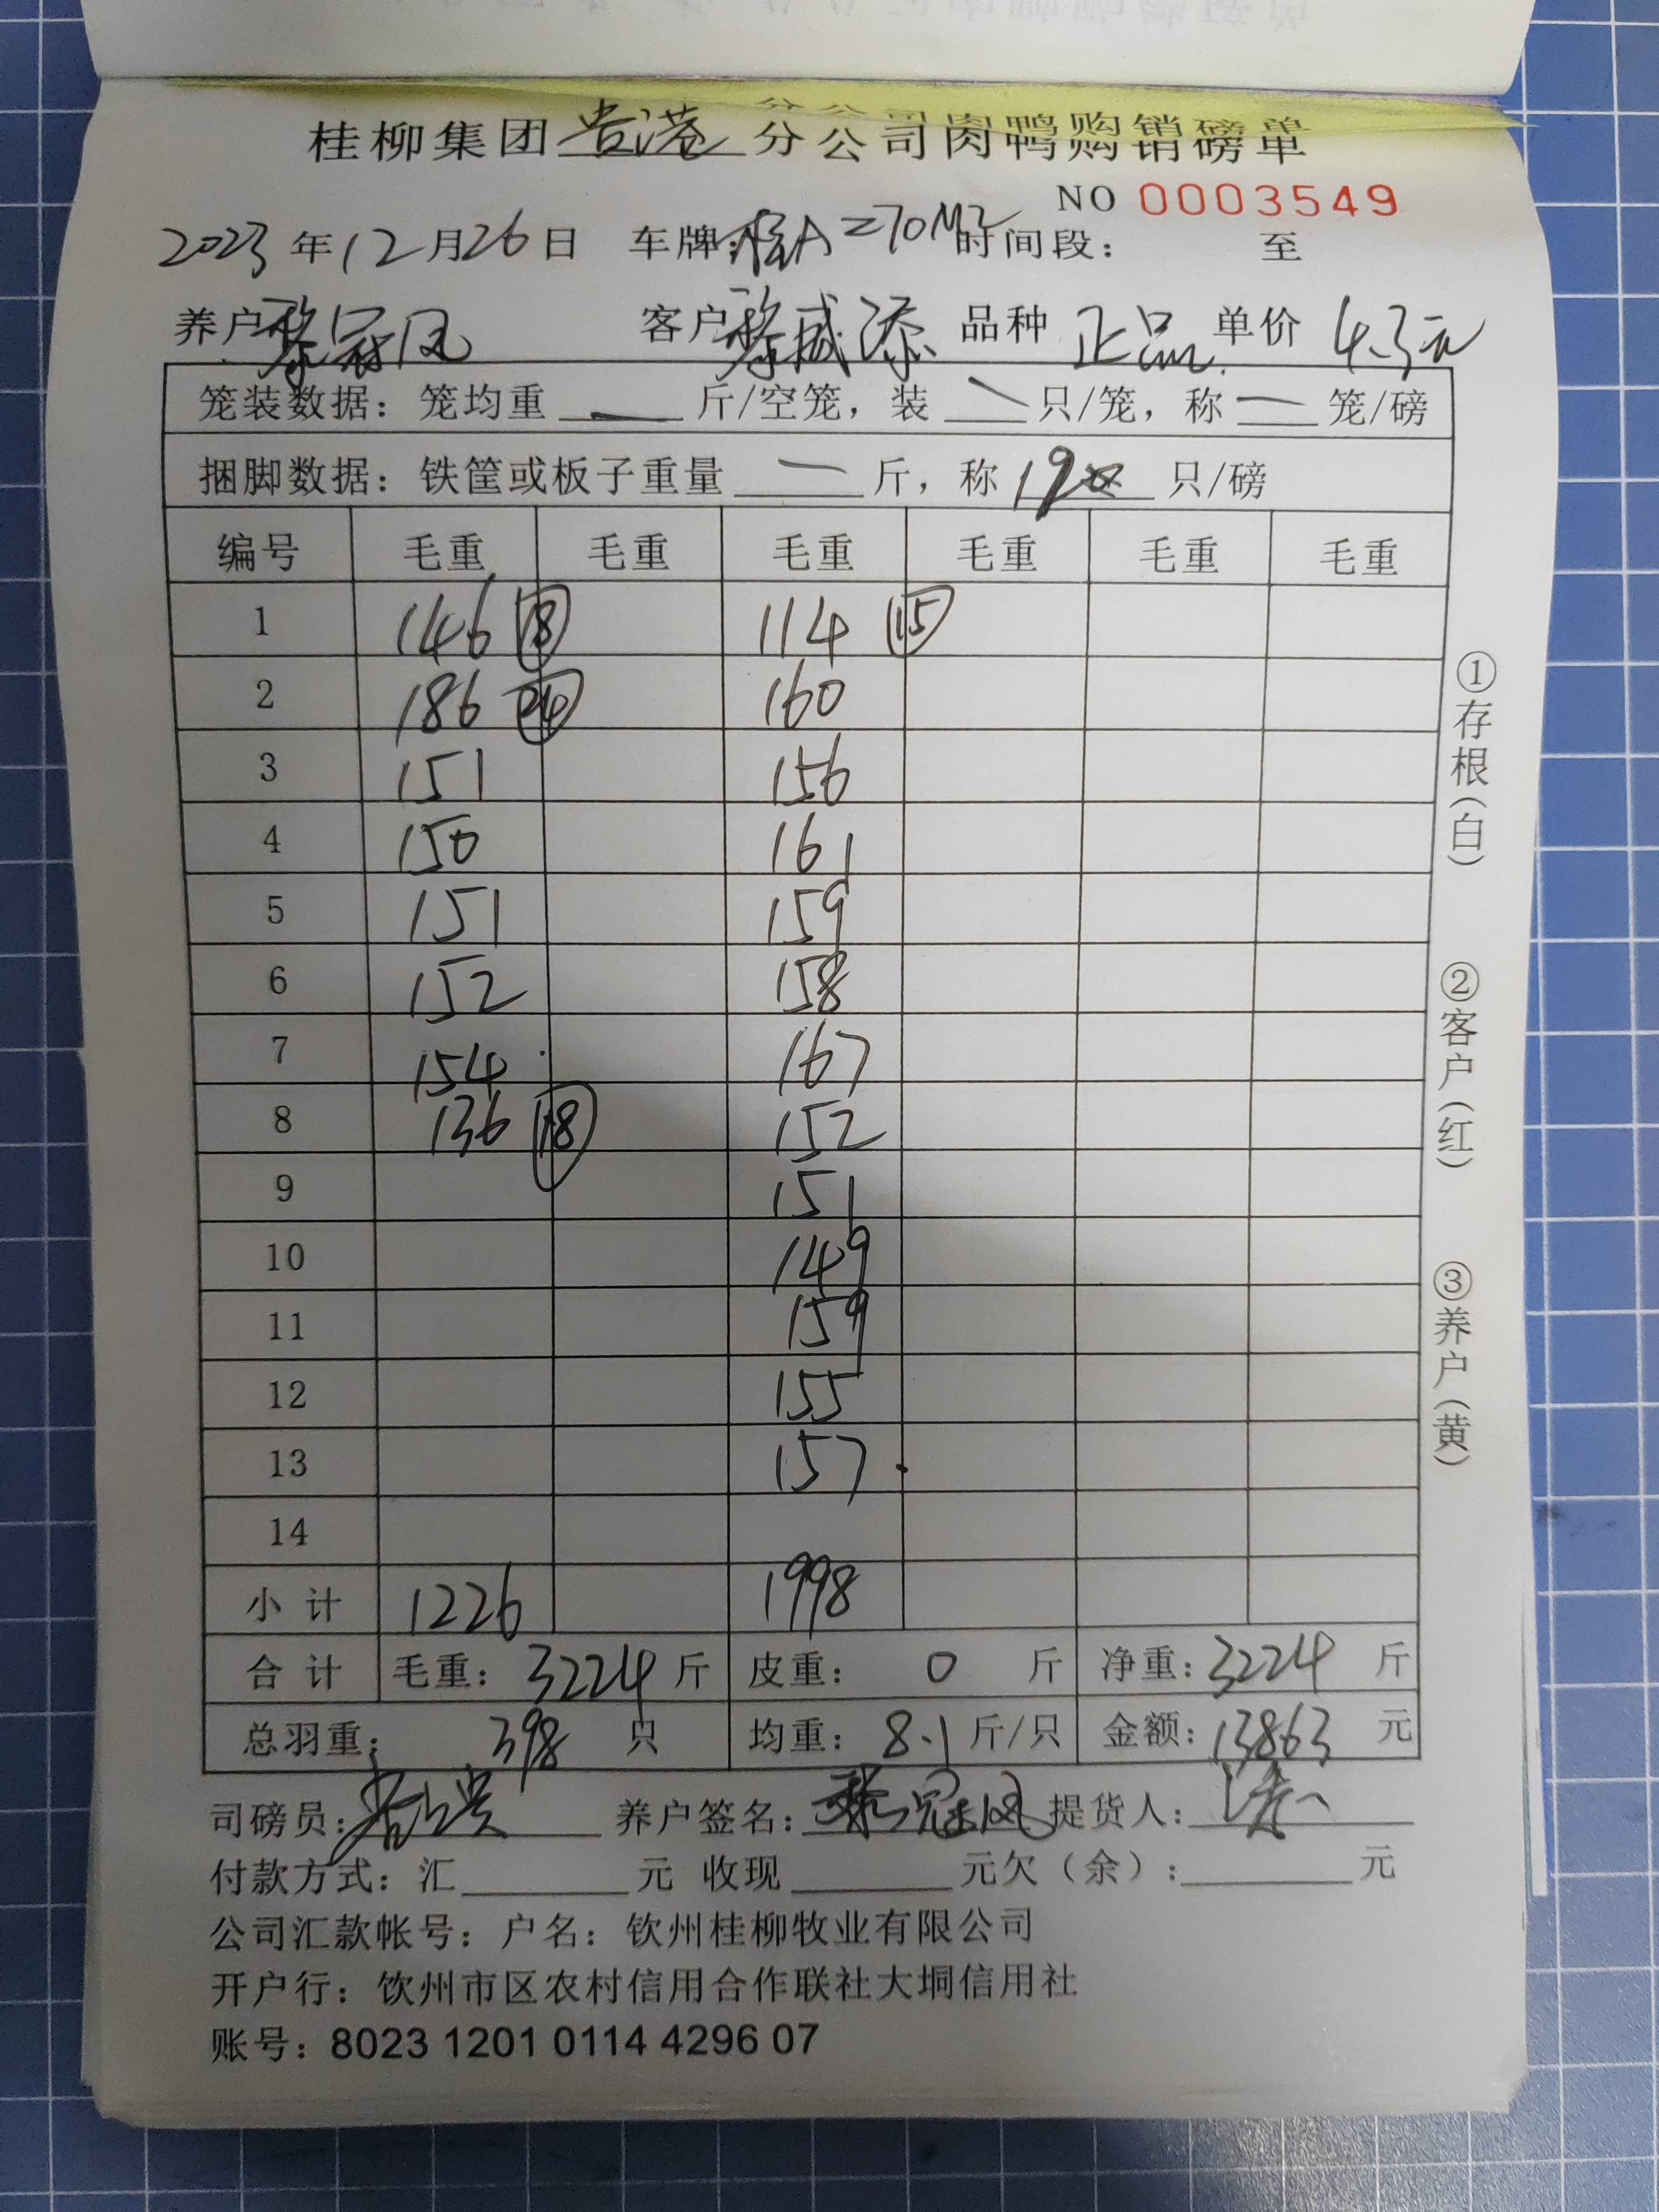 桂柳集团贵港分公司肉鸭购销磅单
NO 0003549
2023年12月26日 车牌:桂A 时间段: 至
养户黎冠凤 客户黎威添 品种 正品 单价 4.3元
笼装数据:笼均重 — 斤/空笼,装 — 只/笼,称 — 笼/磅
捆脚数据:铁筐或板子重量 — 斤,称 只/磅
编号 毛重 毛重 毛重 毛重 毛重 毛重
1 146 18 114 15
2 186 24 160
3 151 156
4 150 161
5 151 159
6 152 158
7 154 167
8 136 18 152
9 151
10 149
11 159
12 155
13 157
14
小计 1226 1998
合计 毛重:3224斤 皮重: 0 斤 净重:3224 斤
总羽重: 398 只 均重: 8.1 斤/只 金额:13863 元
司磅员: 养户签名:黎冠凤 提货人:
付款方式:汇 元 收现 元欠(余): 元
公司汇款帐号:户名:钦州桂柳牧业有限公司
开户行:钦州市区农村信用合作联社大垌信用社
账号:8023 1201 0114 4296 07
①存根(白)
②客户(红)
③养户(黄)